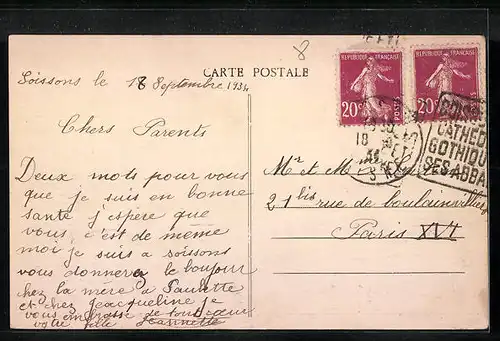 8
Soissons le 18 Septembre 1934
CARTE POSTALE
REPUBLIQUE FRANCAISE
20c POSTES
REPUBLIQUE FRANCAISE
20c POSTES
CATHED
GOTHIQU
SES ABBA
Chers Parents
Deux mots pour vous
que je suis en bonne
sante j'espère que
vous, c'est de même
moi je suis a soissons
vous donnerez le boujour
chez la mère a Paulette
et chez Jeacqueline je
vous embrasse de tout cœur
votre fille Jeannette
Mr et Mme
21 bis rue de boulainvilliers
Paris XVI